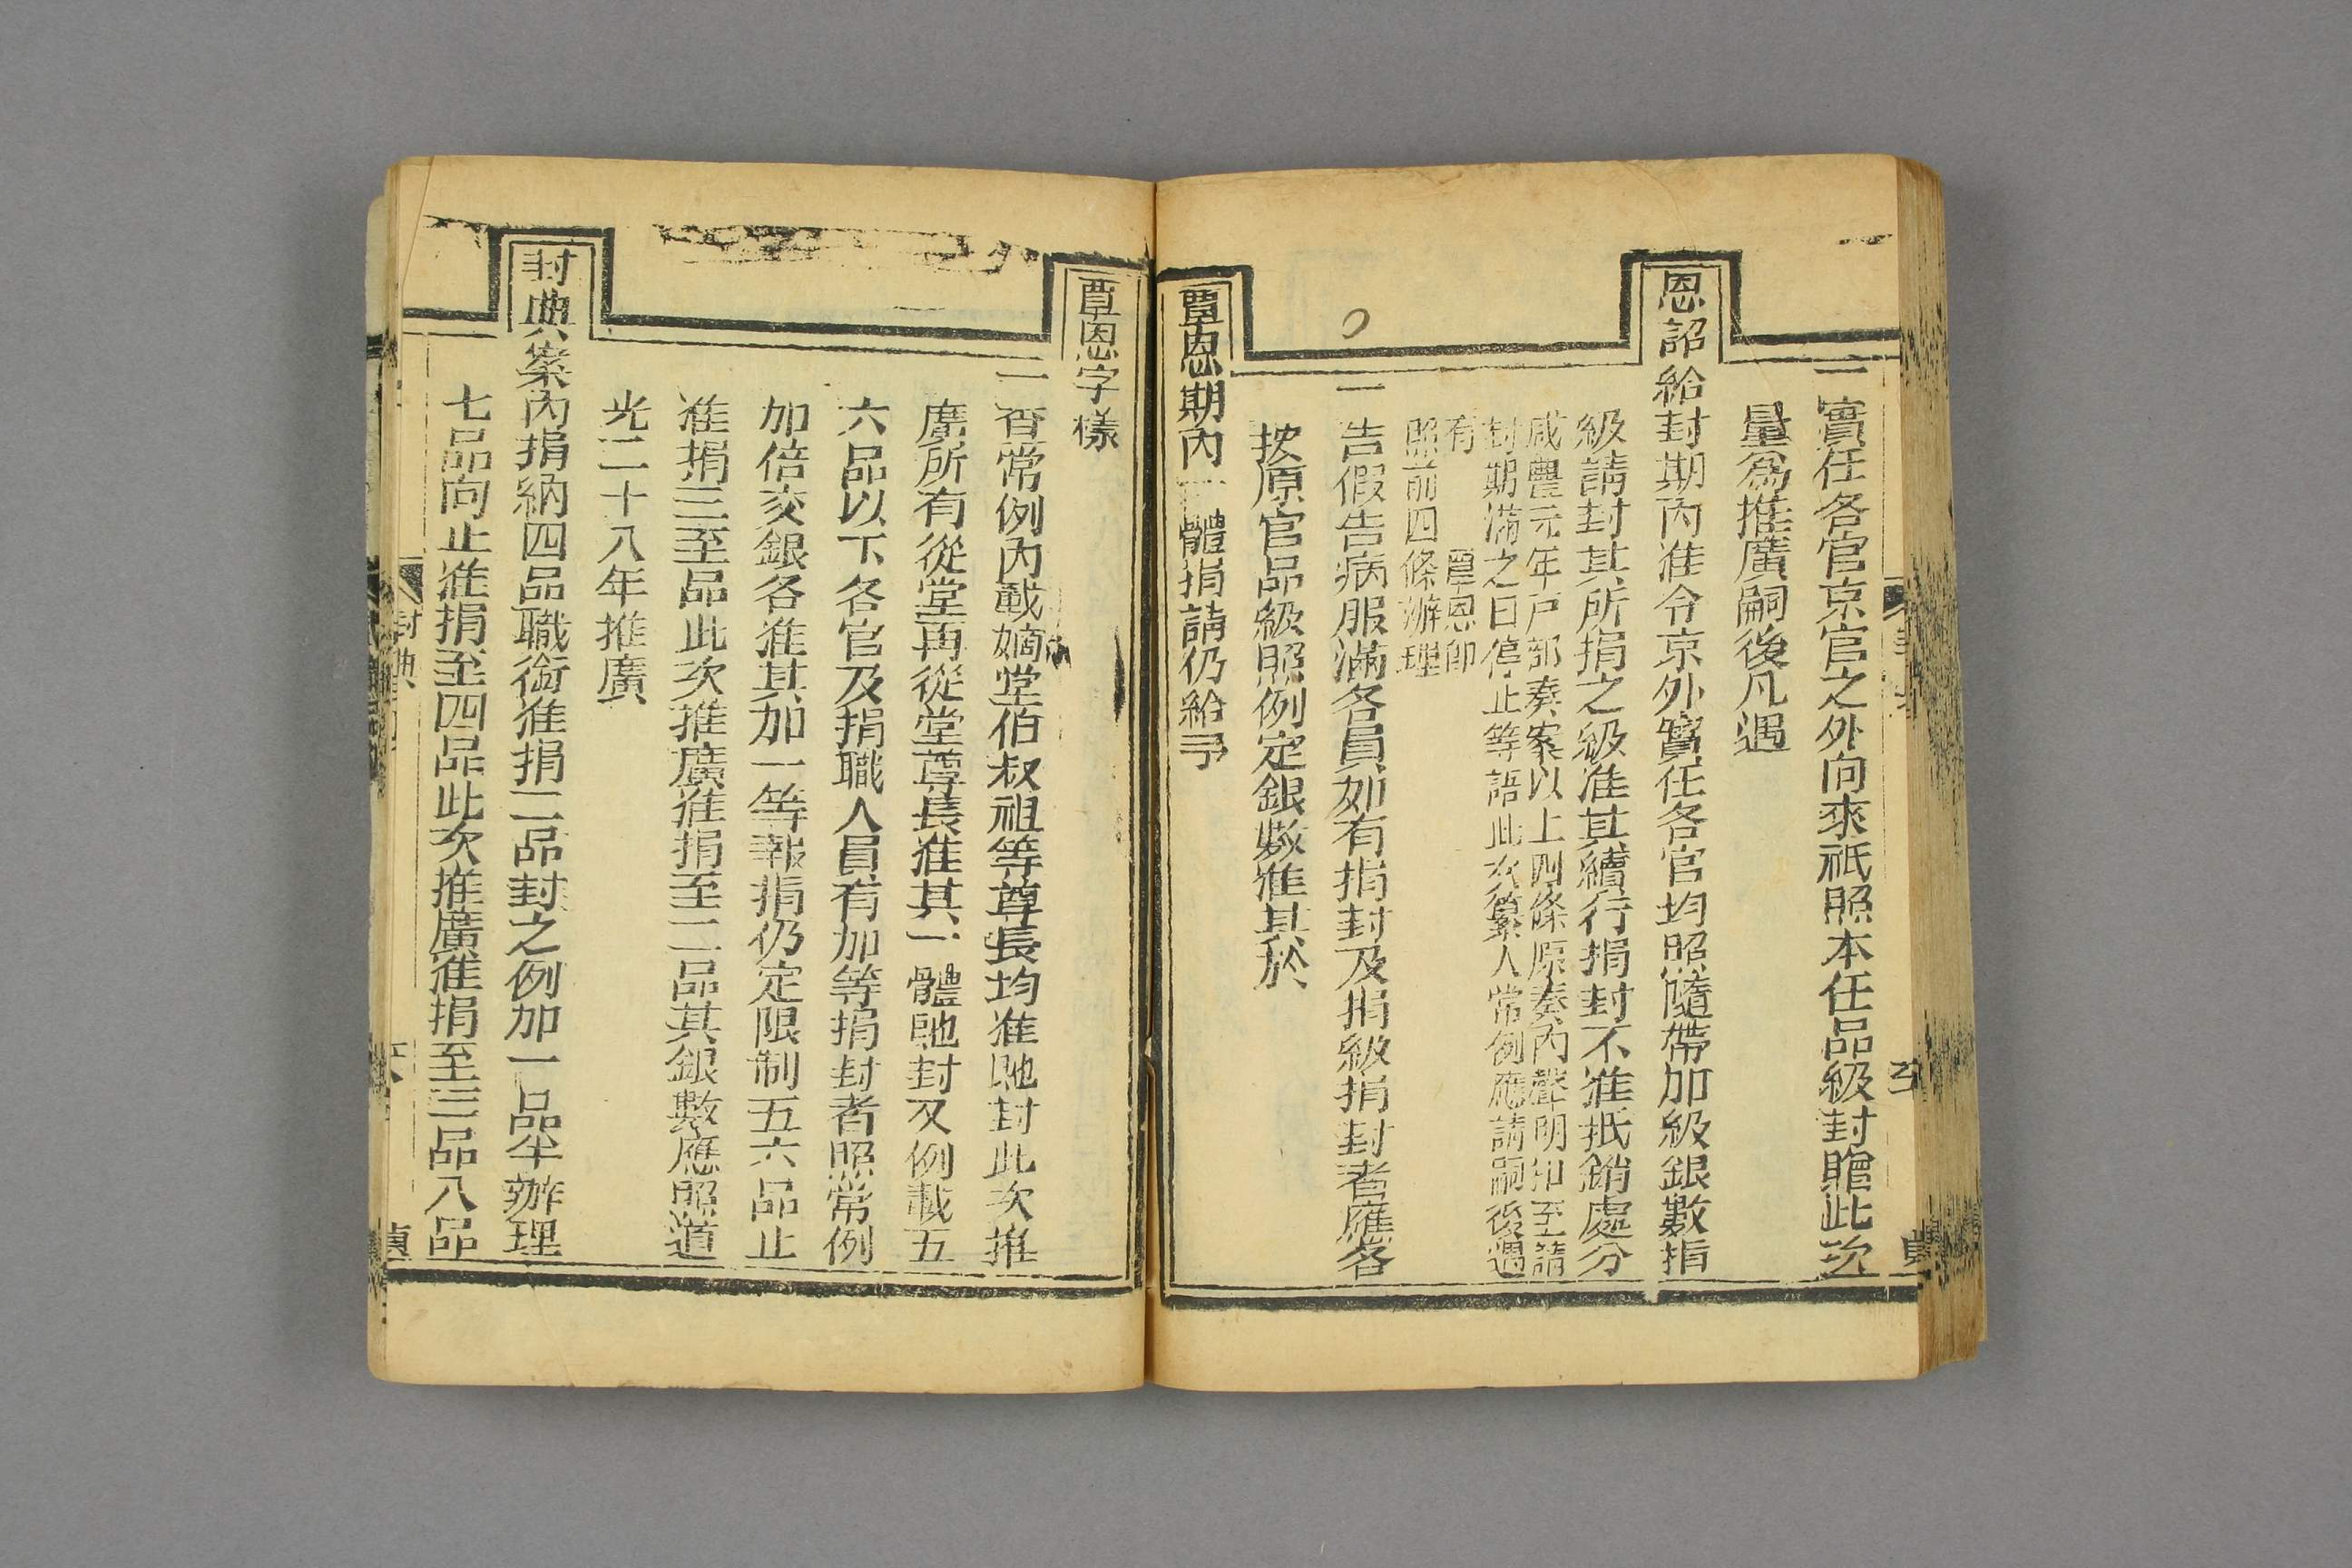 一實任各官京官之外向來祇照本任品級封贈此次
量為推廣嗣後凡遇
恩詔給封期內准令京外實任各官均照隨帶加級銀數捐
級請封其所捐之級准其續行捐封不准抵銷處分
咸豐元年戶部奏案以上四條原奏內聲明扣至請
封期滿之日停止等語此次纂入常例應請嗣後遇
有 覃恩卽
照前四條辦理
一告假告病服滿各員如有捐封及捐級捐封者應各
按原官品級照例定銀數准其於
覃恩期內一體捐請仍給予
覃恩字樣
一查常例內載嫡堂伯叔祖等尊長均准貤封此次推
廣所有從堂再從堂尊長准其一體貤封又例載五
六品以下各官及捐職人員有加等捐封者照常例
加倍交銀各准其加一等報捐仍定限制五六品止
准捐三至品此次推廣准捐至二品其銀數應照道
光二十八年推廣
封典案內捐納四品職銜准捐二品封之例加一品半辦理
七品向止准捐至四品此次推廣准捐至三品八品
封典